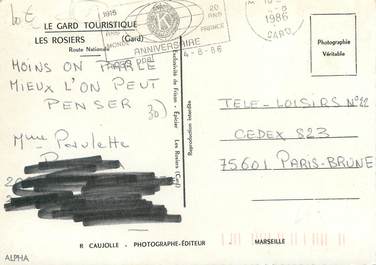 10 €
LE GARD TOURISTIQUE
LES ROSIERS (Gard)
Route Nationale
1915
MONDE
20
ANS
FRANCE
ANNIVERSAIRE
4-8-86
1986
GARD
Photographie
Véritable
MOINS ON PARLE
MIEUX L'ON PEUT
PENSER
30)
Mme Paulette
Exclusivité de Frison - Épicier Les Rosiers (Gard)
Reproduction Interdite
TELE-LOISIRS N°22
CEDEX 823
75601 PARIS-BRUNE
R CAUJOLLE - PHOTOGRAPHE-ÉDITEUR - MARSEILLE
ALPHA